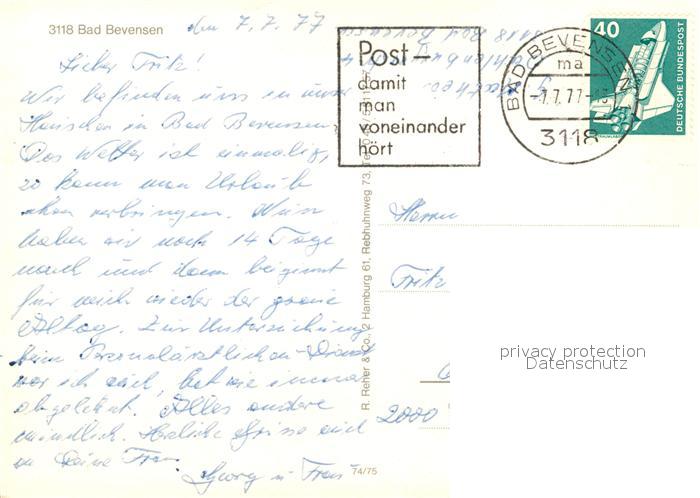 3118 Bad Bevensen
den 7.7.77
Lieber Fritz!
Wir befinden uns in
Häuschen in Bad Bevensen.
Das Wetter ist einmalig,
so kann man Urlaub
schon verbringen. Nun
haben wir noch 14 Tage
noch und dann beginnt
für mich wieder der graue
Alltag. Zur Untersuchung
beim Personalärztlichen-Dienst
war ich auch, hat wie immer
abgelehnt. Alles andere
mündlich. Herzliche Grüsse auch
an Deine Frau.
Georg u. Frau
Post –
damit
man
voneinander
hört
BAD BEVENSEN
ma
-7.7.77-
3118
40
DEUTSCHE BUNDESPOST
R. Reher & Co., 2 Hamburg 61, Rebhuhnweg 73,
74/75
Herrn
Fritz
2000
privacy protection
Datenschutz